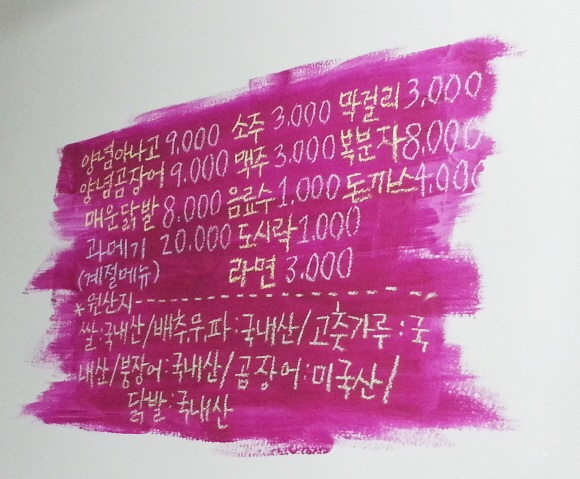 양념아나고 9.000 소주 3.000 막걸리 3,000
양념곰장어 9.000 맥주 3.000 복분자 8,000
매운닭발 8.000 음료수 1.000 돈까스 4.000
과메기 20.000 도시락 1.000
(계절메뉴) 라면 3.000
*원산지----------------
쌀:국내산/배추,무,파:국내산/고춧가루:국
내산/붕장어:국내산/곰장어:미국산/
닭발:국내산